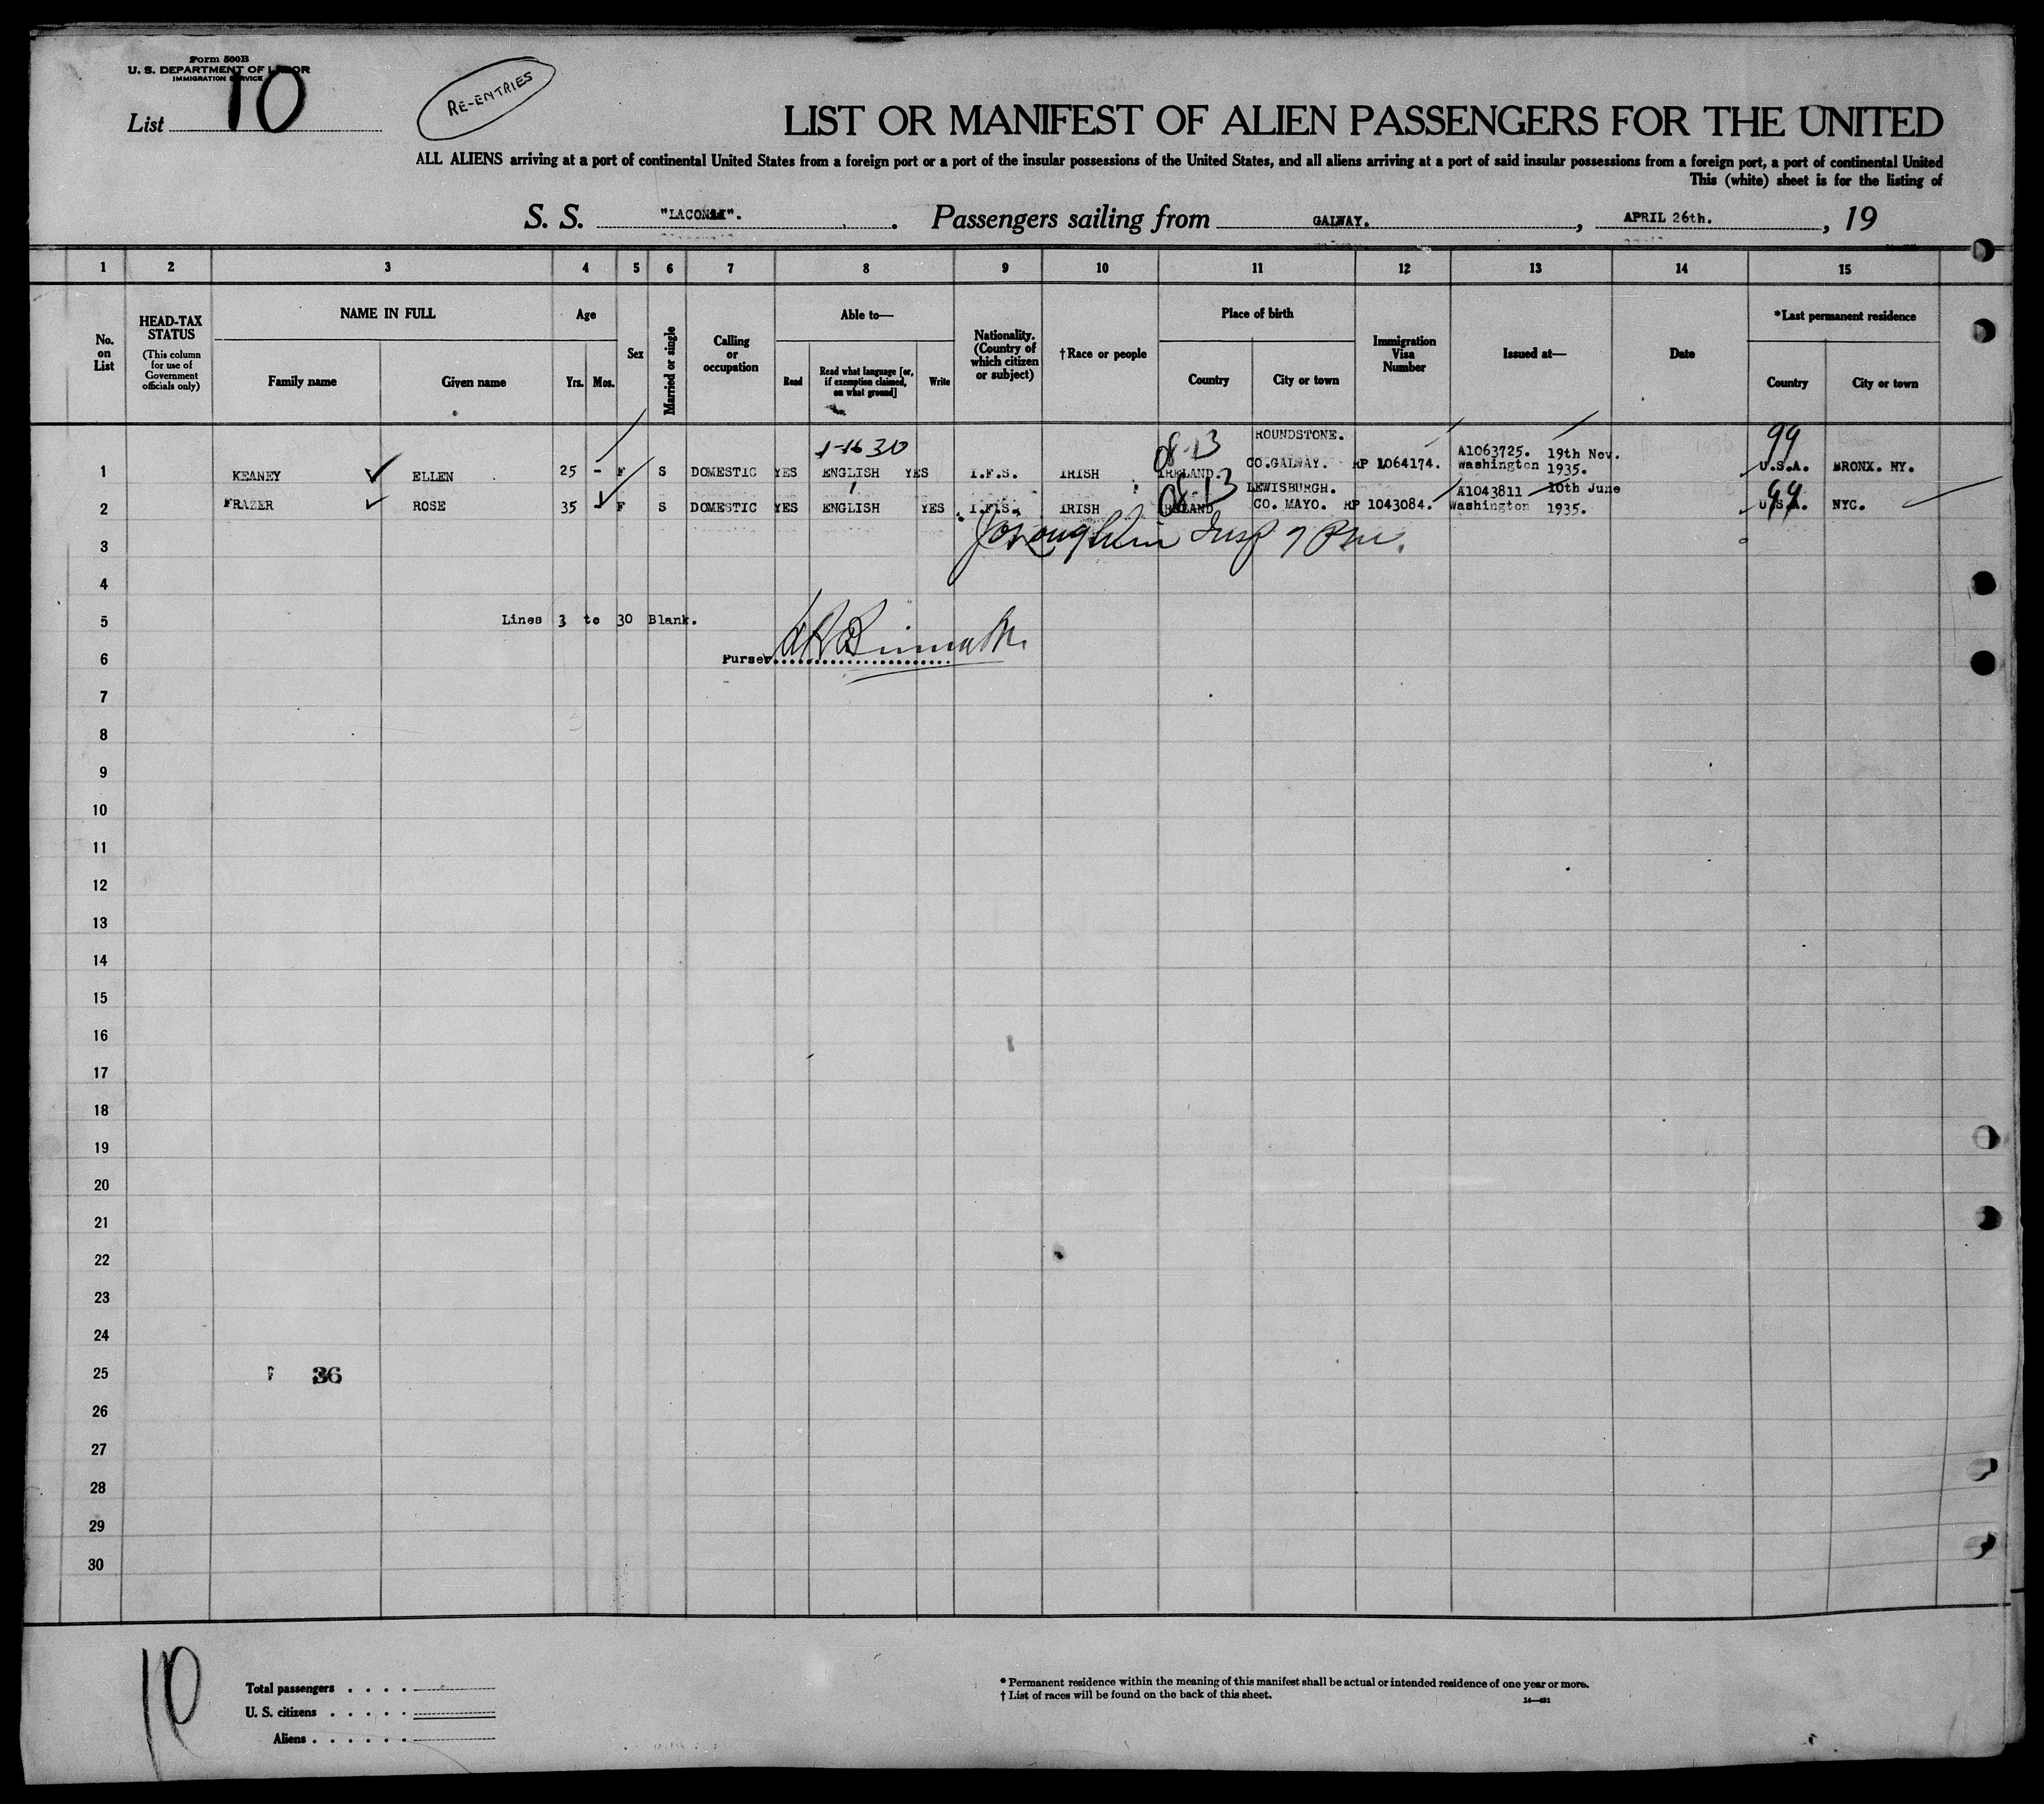 Form 500B
U. S. DEPARTMENT OF LABOR
IMMIGRATION SERVICE
List 10
RE-ENTRIES
LIST OR MANIFEST OF ALIEN PASSENGERS FOR THE UNITED
ALL ALIENS arriving at a port of continental United States from a foreign port or a port of the insular possessions of the United States, and all aliens arriving at a port of said insular possessions from a foreign port, a port of continental United
This (white) sheet is for the listing of
S. S. "LACONIA". Passengers sailing from GALWAY. , APRIL 26th. , 19
1 2 3 4 5 6 7 8 9 10 11 12 13 14 15
No. on List
HEAD-TAX STATUS
(This column for use of Government officials only)
NAME IN FULL
Family name Given name
Age
Yrs. Mos.
Sex
Married or single
Calling or occupation
Able to—
Read
Read what language [or, if exemption claimed, on what ground]
Write
Nationality. (Country of which citizen or subject)
†Race or people
Place of birth
Country City or town
Immigration Visa Number
Issued at—
Date
*Last permanent residence
Country City or town
1-16 30 08-13 ROUNDSTONE. A1063725. 19th Nov. 99
1 KEANEY ELLEN 25 - F S DOMESTIC YES ENGLISH YES I.F.S. IRISH IRELAND. CO.GALWAY. RP 1064174. Washington 1935. U.S.A. BRONX. NY.
08-13 LEWISBURGH. A1043811 10th June 99
2 FRAZER ROSE 35 - F S DOMESTIC YES ENGLISH YES I.F.S. IRISH IRELAND CO. MAYO. RP 1043084. Washington 1935. U.S.A. NYC.
3
4
5 Lines 3 to 30 Blank.
6 Purser
7
8
9
10
11
12
13
14
15
16
17
18
19
20
21
22
23
24
25 36
26
27
28
29
30
10
Total passengers . . . .
U. S. citizens . . . . .
Aliens . . . . . .
* Permanent residence within the meaning of this manifest shall be actual or intended residence of one year or more.
† List of races will be found on the back of this sheet.